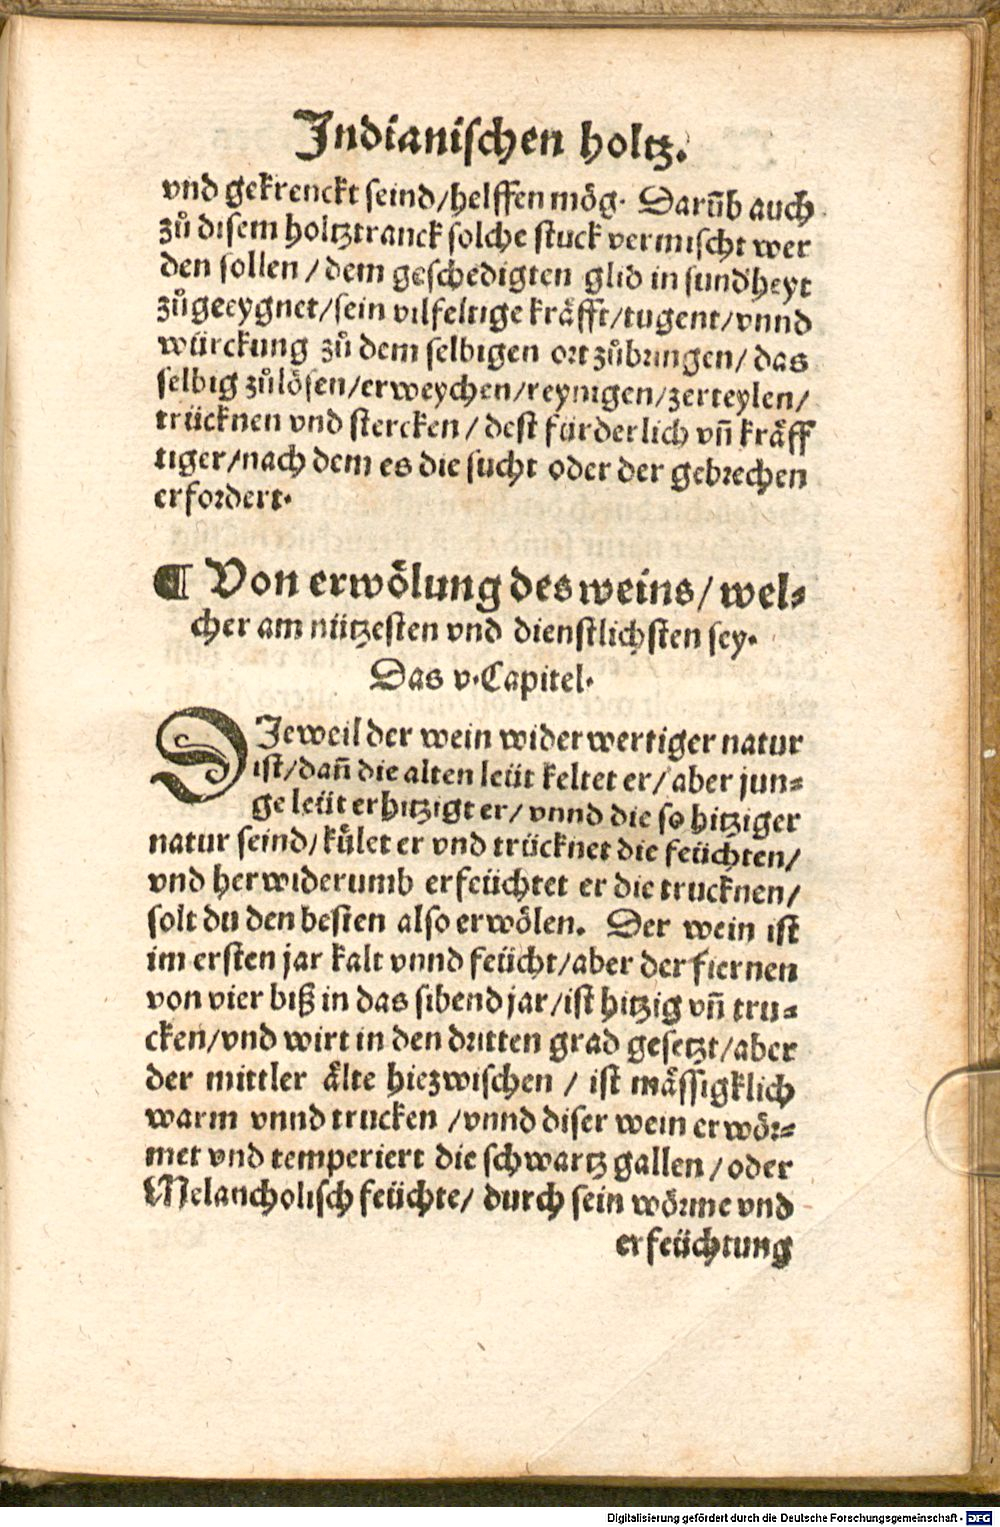 Indianischen holtz.
vnd gekrenckt seind/helffen mög. Darũb auch
zů disem holtztranck solche stuck vermischt wer
den sollen / dem geschedigten glid in sundheyt
zůgeeygnet/sein vilfeltige kräfft/tugent/vnnd
würckung zů dem selbigen ort zůbringen/ das
selbig zůlösen/erweychen/reynigen/zerteylen/
trücknen vnd stercken / dest fürderlich vñ kräff
tiger/nach dem es die sucht oder der gebrechen
erfordert.
¶ Von erwölung des weins/ wel-
cher am nützesten vnd dienstlichsten sey.
Das v. Capitel.
DJeweil der wein widerwertiger natur
ist/dañ die alten leüt keltet er/ aber jun-
ge leüt erhitzigt er/ vnnd die so hitziger
natur seind/ kůlet er vnd trücknet die feüchten/
vnd herwiderumb erfeüchtet er die trucknen/
solt du den besten also erwölen. Der wein ist
im ersten jar kalt vnnd feücht/aber der fiernen
von vier biß in das sibend jar/ist hitzig vñ tru-
cken/vnd wirt in den dritten grad gesetzt/aber
der mittler älte hiezwischen / ist mässigklich
warm vnnd trucken /vnnd diser wein erwör-
met vnd temperiert die schwartz gallen / oder
Melancholisch feüchte/ durch sein wörme vnd
erfeüchtung
Digitalisierung gefördert durch die Deutsche Forschungsgemeinschaft - DFG